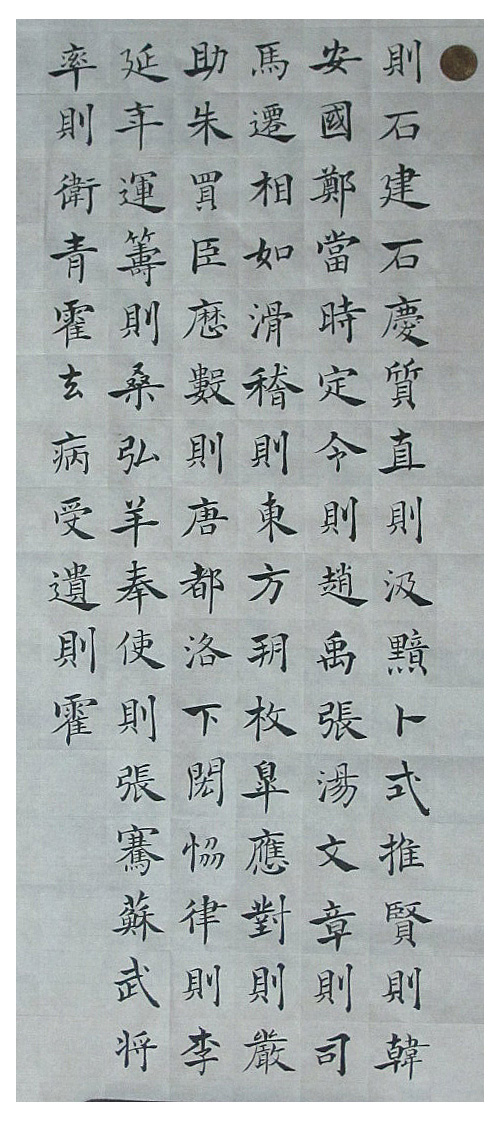 則石建石慶質直則汲黯卜式推賢則韓
安國鄭當時定令則趙禹張湯文章則司
馬遷相如滑稽則東方朔枚皐應對則嚴
助朱買臣歷數則唐都洛下閎恊律則李
延年運籌則桑弘羊奉使則張騫蘇武将
率則衛青霍去病受遺則霍